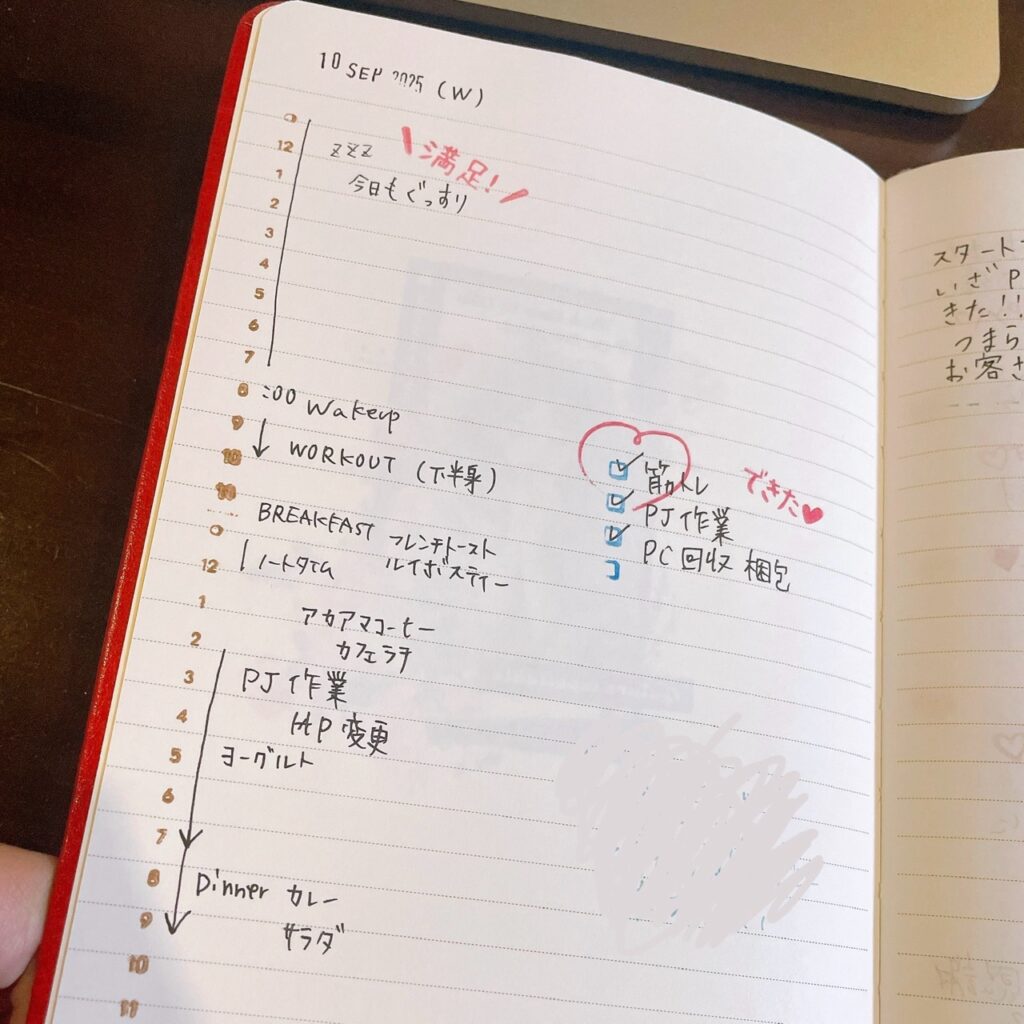 10 SEP 2025 (W)
12
zzz
\満足!/
1
今日もぐっすり
2
3
4
5
6
7
8 :00 Wakeup
9
10 WORKOUT (下半身)
11
BREAKFAST フレンチトースト
ルイボスティー
12 ノートタイム
1
アカアマコーヒー
2
カフェラテ
3 PJ 作業
4 HP 変更
5 ヨーグルト
6
7
8 Dinner カレー
9 サラダ
10
11
筋トレ
できた♥
PJ 作業
PC 回収 梱包
スタート
いざ P
きた!!
つまら
お客さ